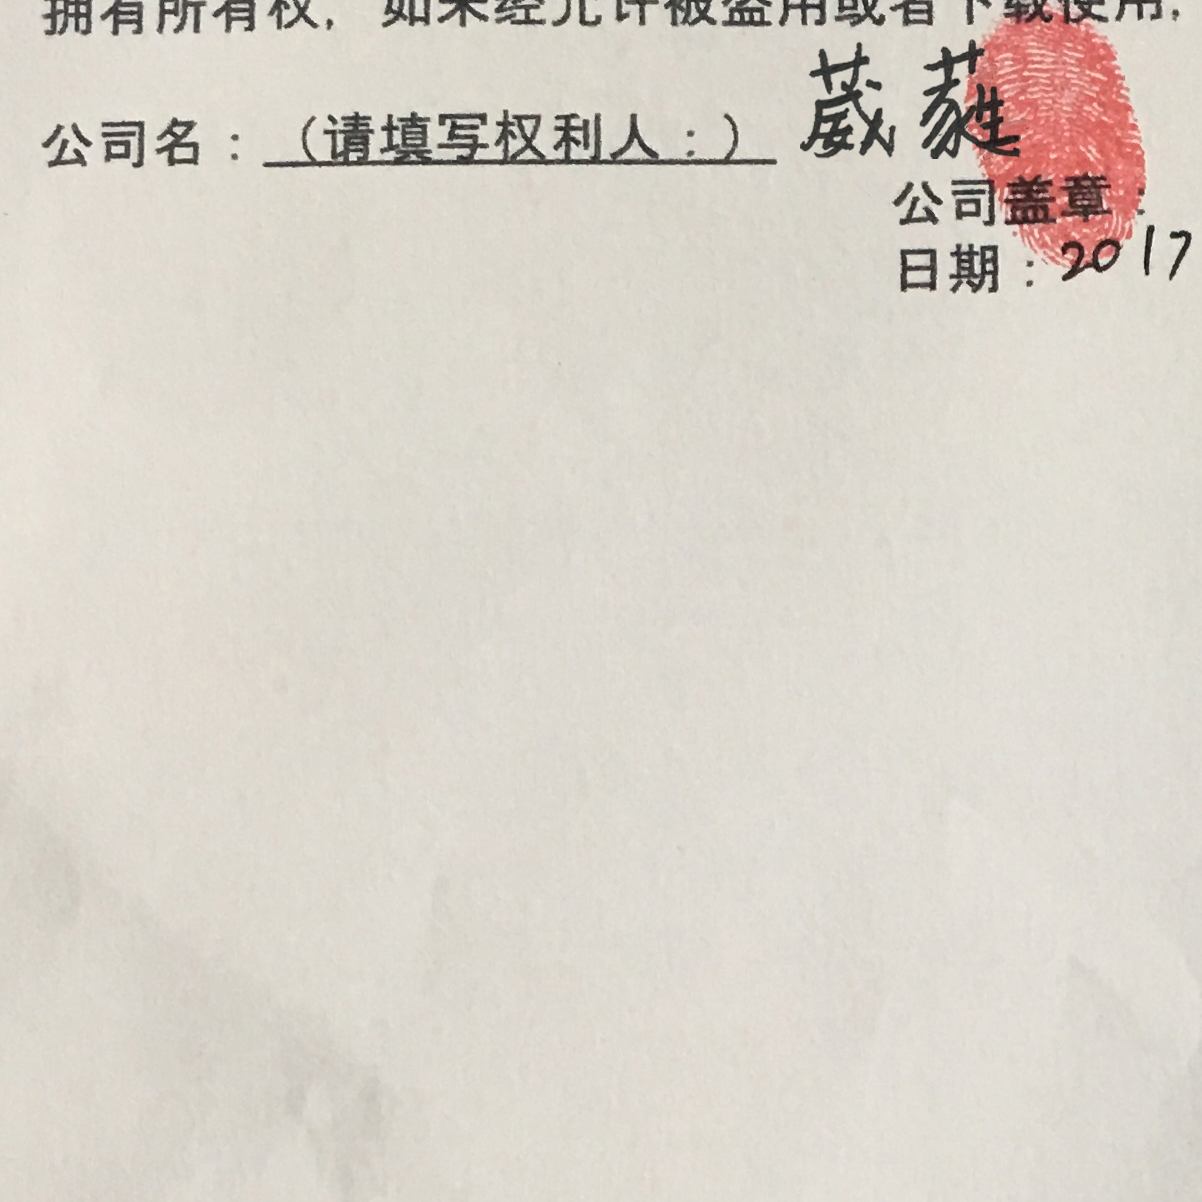 拥有所有权，如未经允许被盗用或者下载使用，
公司名：（请填写权利人：） 葳蕤
公司盖章：
日期：2017